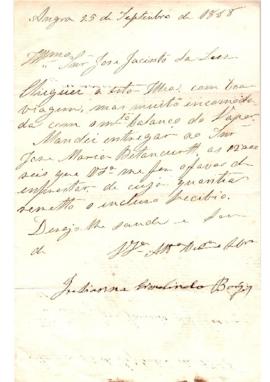 Angra 25 de Septembro de 1858
Illmo. Snr. José Jacinto da Luz
Cheguei a esta Ilha, com boa
viagem, mas muito encomoda
da com o mto. balanço do Vapor
Mandei entregar ao Snr.
José Maria Betancurtt as
reis que VSa. me fez o favor de
emprestar de cuja quantia
remetto o incluso recibo.
Desejo lhe saude e sou
de VSa. Atta.
Julianna Borges